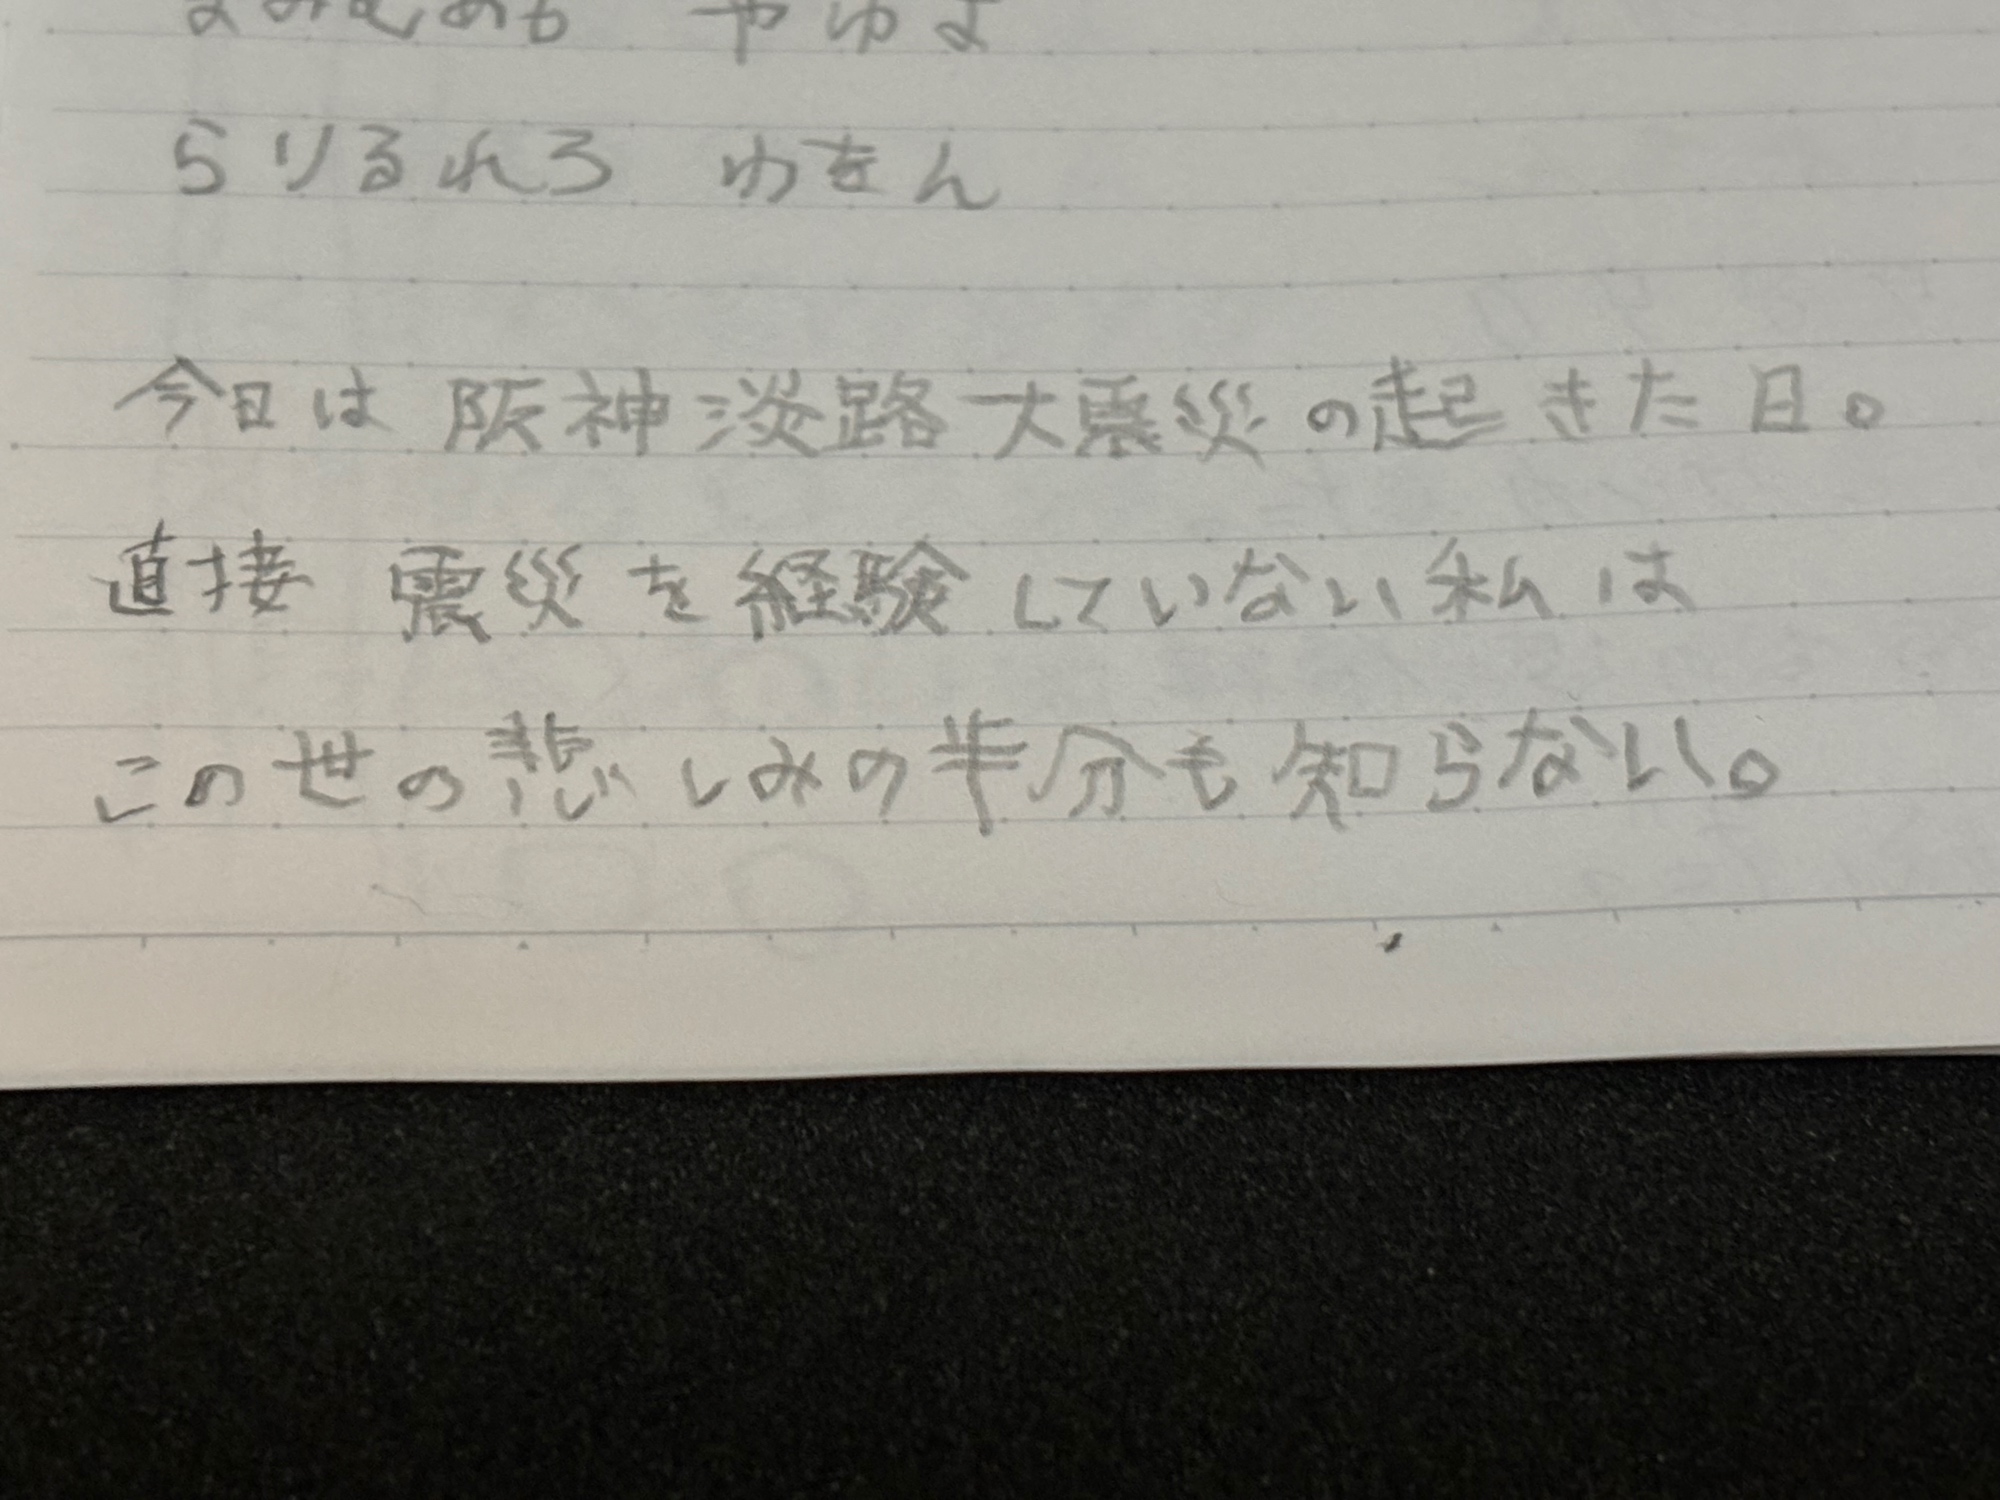 まみむめも やゆよ
らりるれろ わをん
今日は 阪神淡路大震災の起きた日。
直接 震災を経験していない私は
この世の悲しみの半分も知らない。